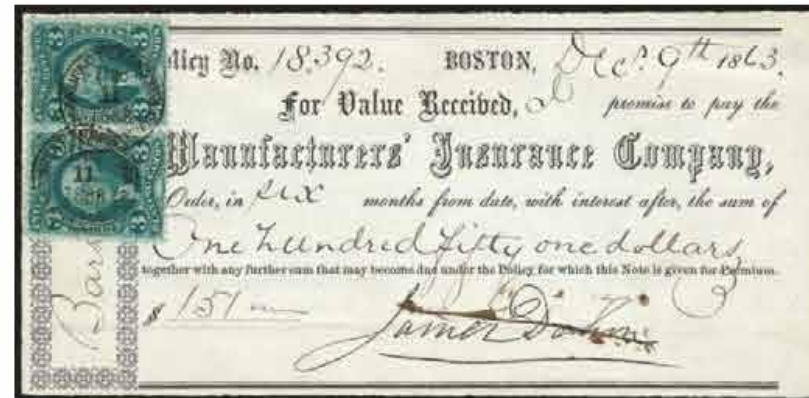 olicy No. 18.392. BOSTON, Dec. 9th 1863.
For Value Received, I promise to pay the
Manufacturers' Insurance Company,
Order, in six months from date, with interest after, the sum of
One hundred fifty one dollars
together with any further sum that may become due under the Policy for which this Note is given for Premium.
$ 151
James
Bar
3 3
3 3
11